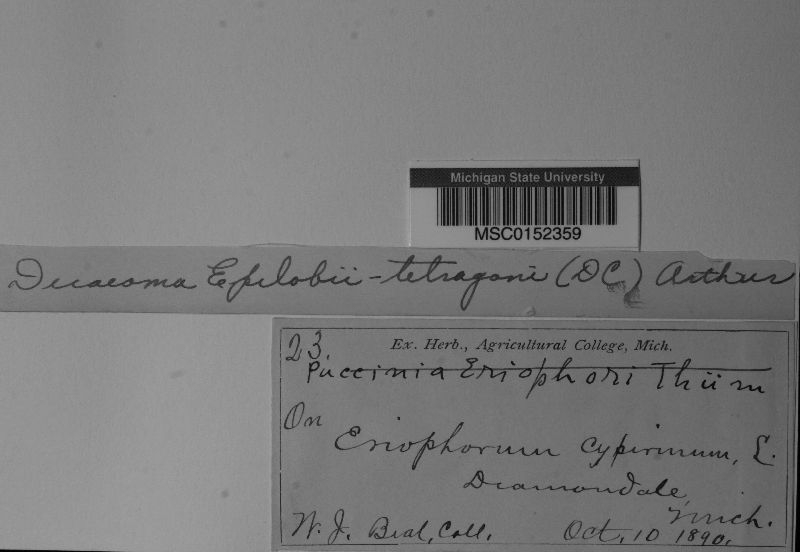 Michigan State University
MSC0152359
Dicaeoma Epilobii-tetragoni (DC) Arthur
23.
Ex. Herb., Agricultural College, Mich.
Puccinia Eriophori Thüm
On
Eriophorum cyperinum, L.
Diamondale,
Mich.
W. J. Beal, Coll. Oct. 10 1890.